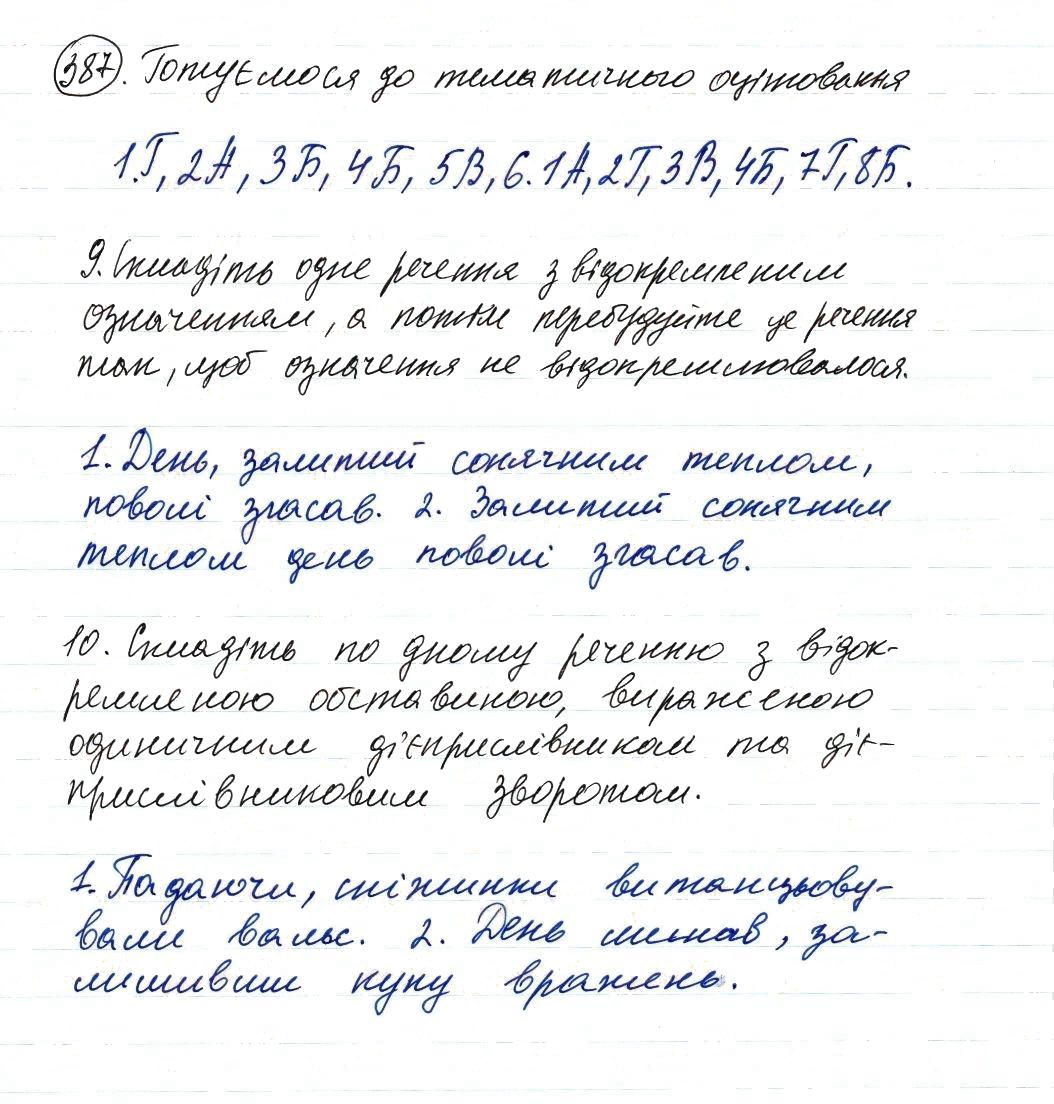 387. Готуємося до тематичного оцінювання
1.Г, 2А, 3Б, 4Б, 5В, 6. 1А, 2Г, 3В, 4Б, 7Г, 8Б.
9. Складіть одне речення з відокремленим
означенням, а потім перебудуйте це речення
так, щоб означення не відокремлювалося.
1. День, залитий сонячним теплом,
поволі згасав. 2. Залитий сонячним
теплом день поволі згасав.
10. Складіть по дному реченню з відок-
ремленою обставиною, вираженою
одиничним дієприслівником та діє-
прислівниковим зворотом.
1. Падаючи, сніжинки витанцьову-
вали вальс. 2. День минав, за-
лишивши купу вражень.